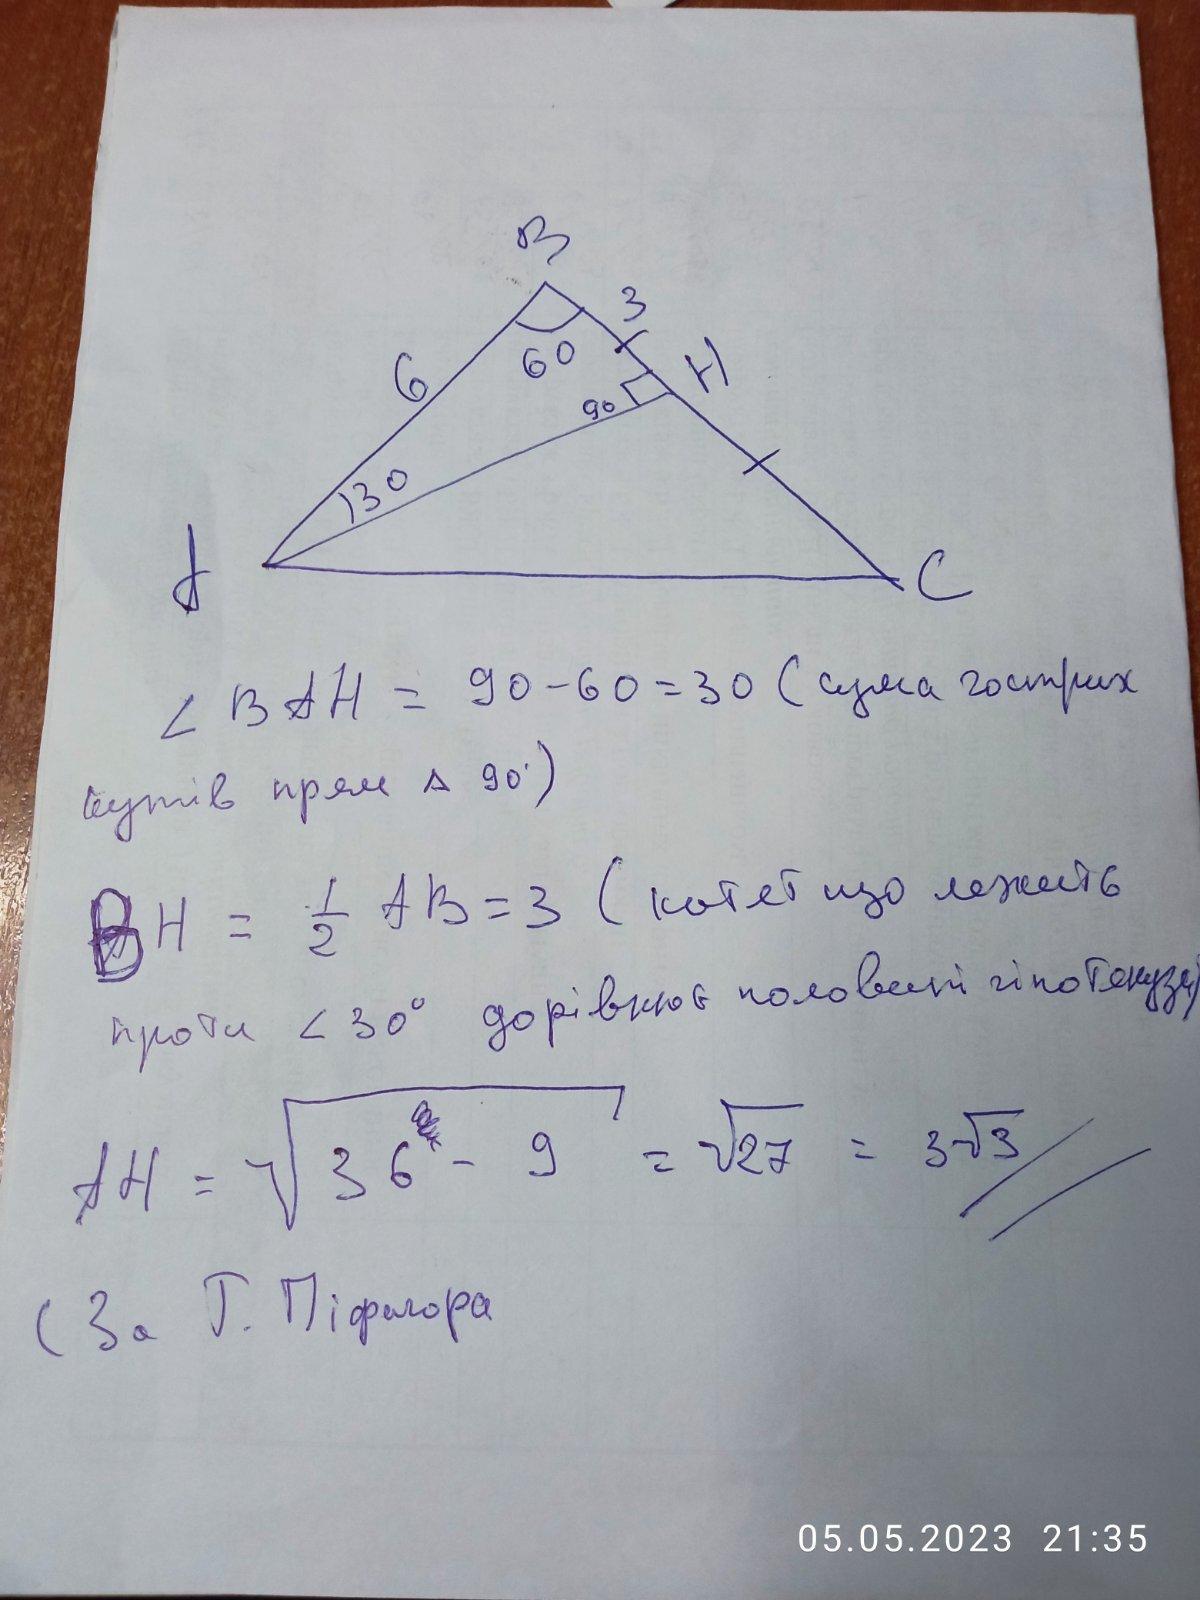 B
3
6
60
H
90
30
A
C
∠ BAH = 90-60=30 (сума гострих
кутів прям Δ 90°)
BH = 1/2 AB = 3 (катет що лежить
проти ∠30° дорівнює половині гіпотенузи)
AH = √36 - 9 = √27 = 3√3
(За Т. Піфагора
05.05.2023 21:35